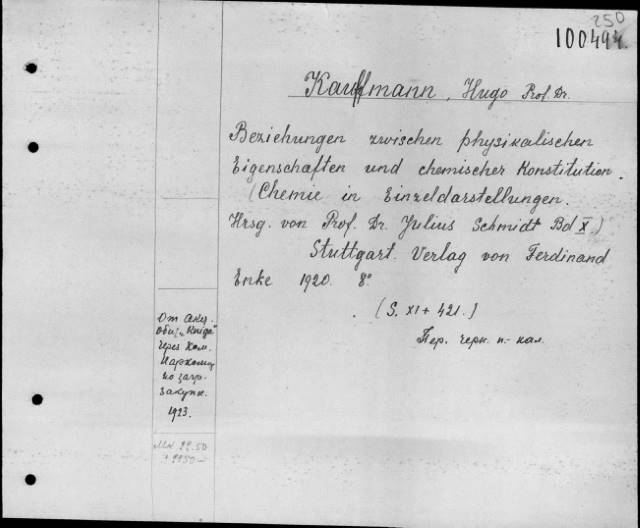 250
100494.
Kauffmann, Hugo Prof. Dr.
Beziehungen zwischen physikalischen
Eigenschaften und chemischer Konstitution.
(Chemie in Einzeldarstellungen.
Hrsg. von Prof. Dr. Julius Schmidt Bd X.)
Stuttgart. Verlag von Ferdinand
Enke 1920. 8°
(S. XI + 421.)
Пер. черн. п.- кал.
От акц.
общ. „Книга"
через ком.
Наркомц
по загр.
закупк.
1923.
Mk 99.50